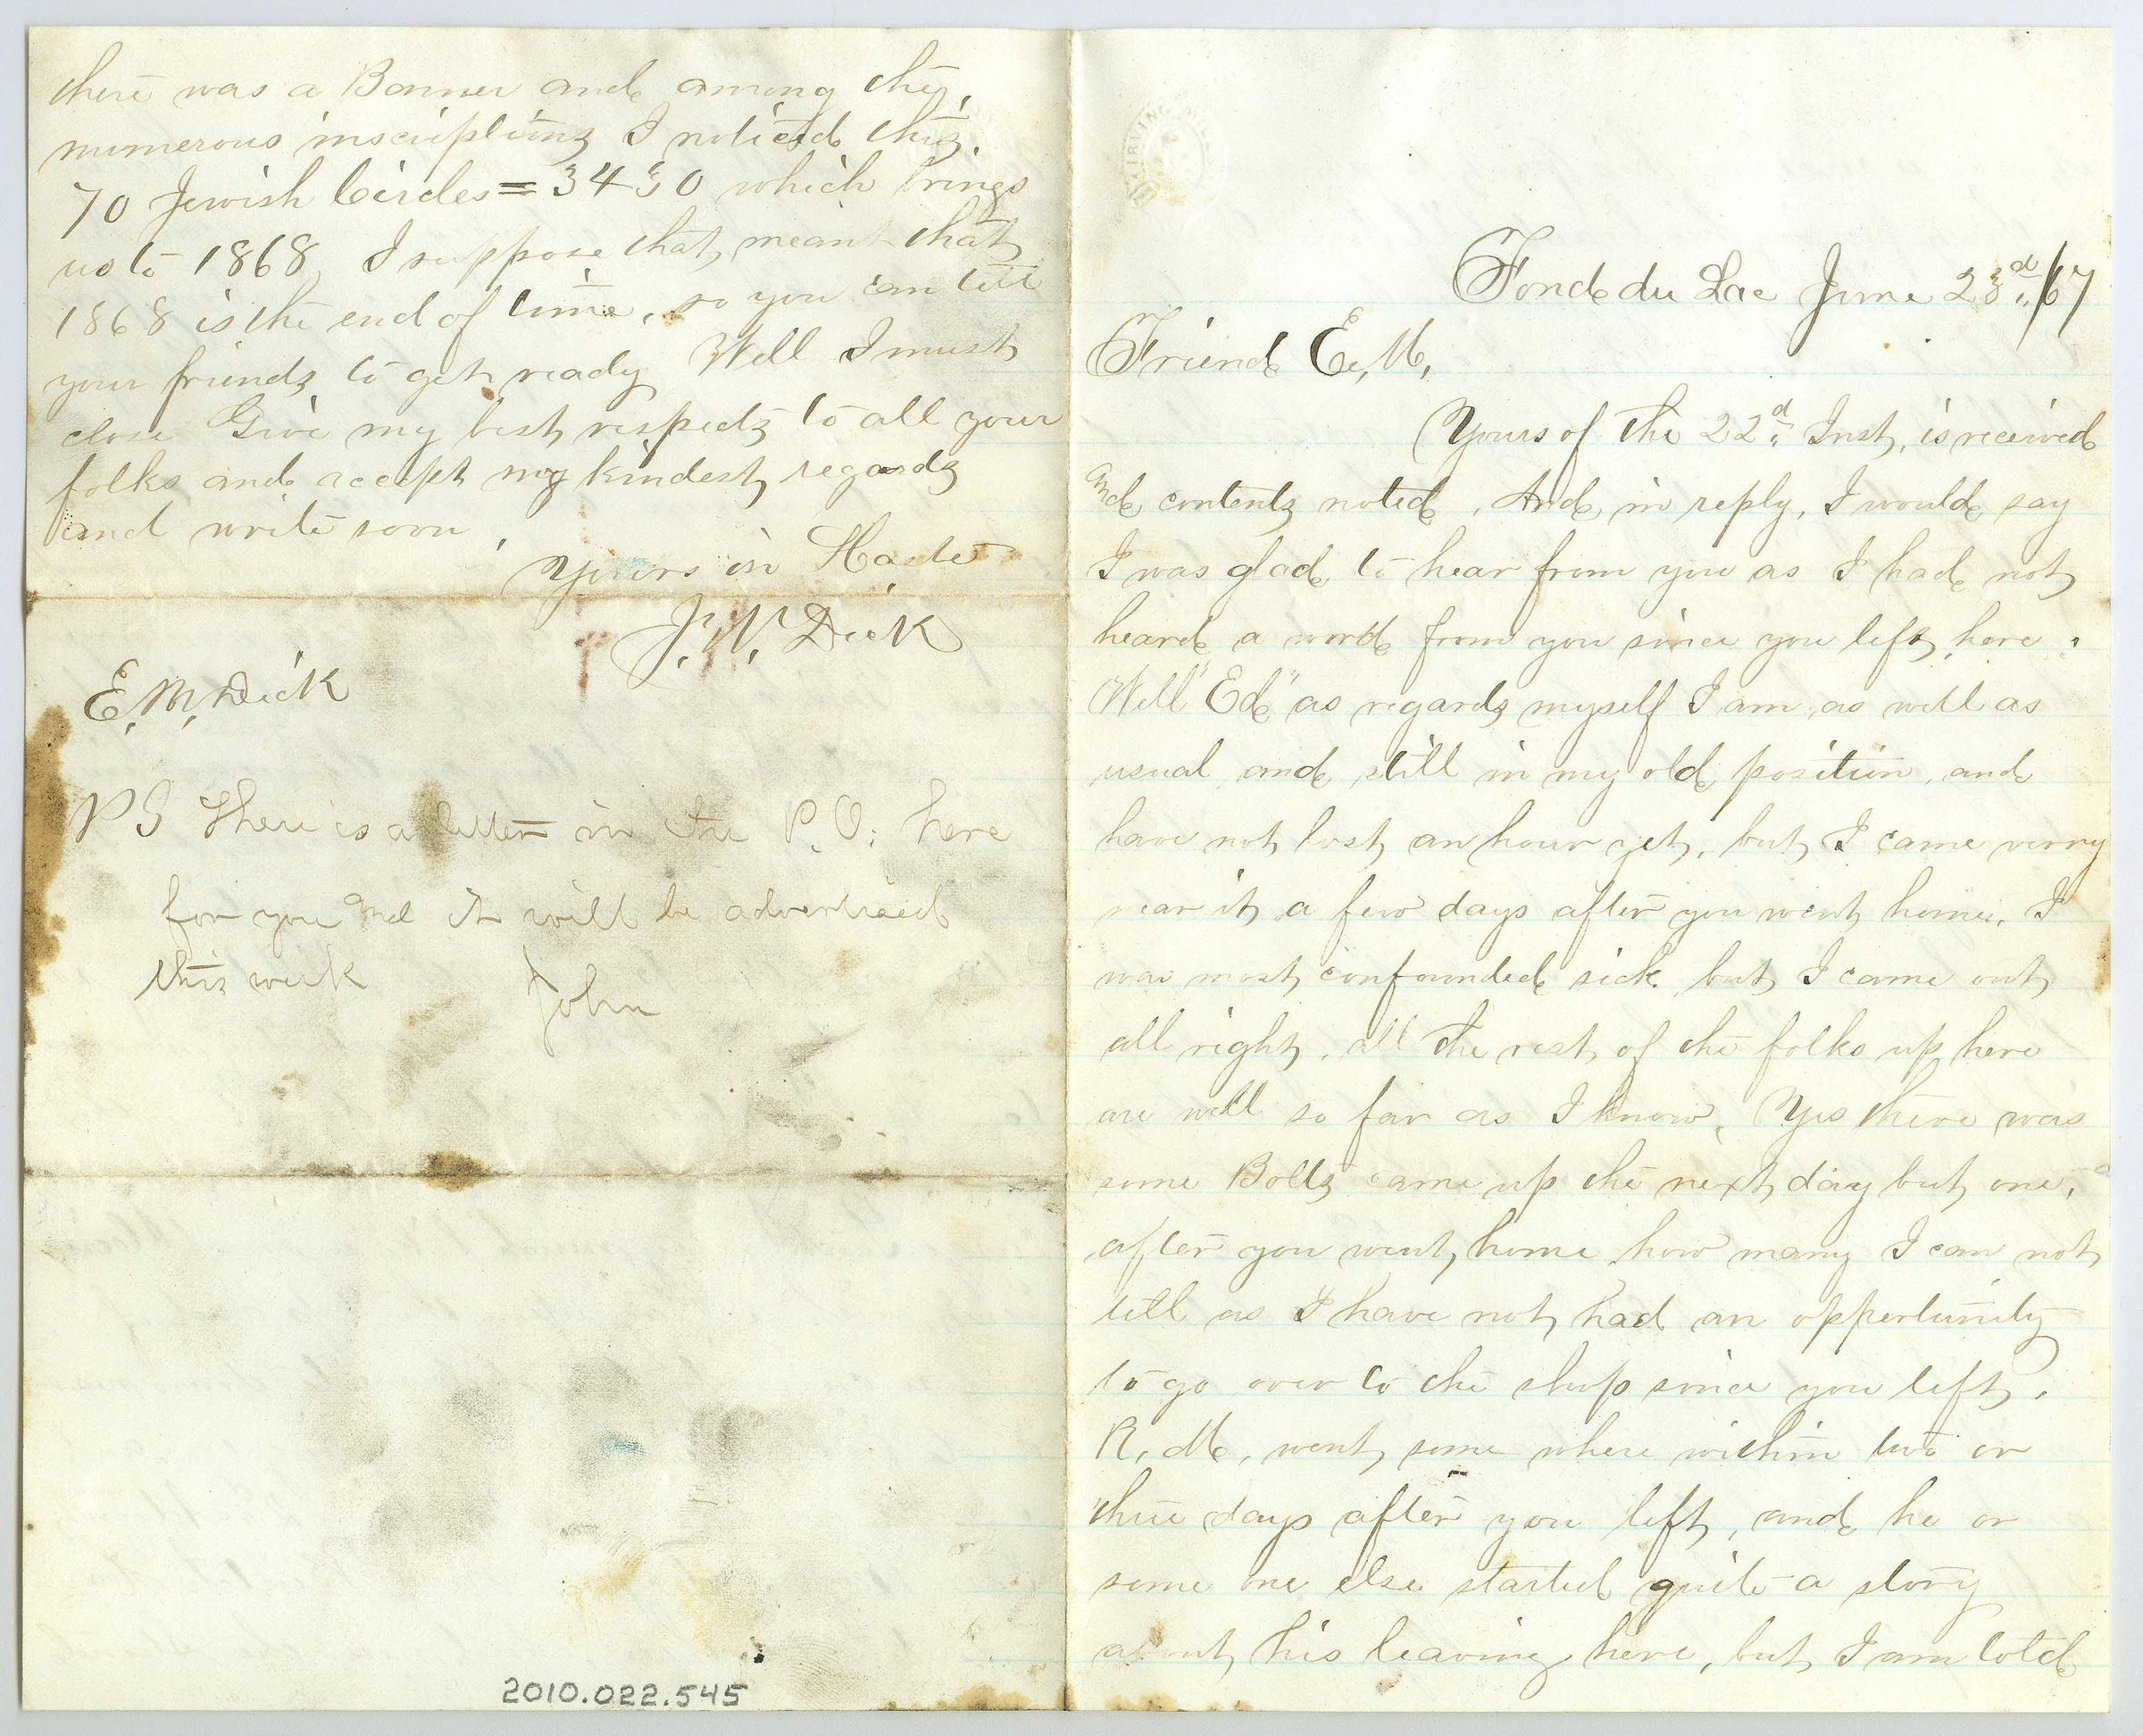 there was a Banner and among the,
numerous inscriptions I noticed this.
70 Jewish Circles = 3430 which brings
us to 1868, I suppose that, meant that,
1868 is the end of time, so you can tell
your friends to get ready Well I must
close Give my best respects to all your
folks and accept my kindest regards
and write soon,
Yours in Haste
J. W. Dick
E. M. Dick
PS There is a letter in the P.O. here
for you and it will be advertised
this week John
2010.022.545
IRVING MILL
Fond du Lac June 23d /67
Friend E. M,
Yours of the 22d Inst, is received
and contents noted, And in reply, I would say
I was glad to hear from you as I had not
heard a word from you since you left here.
Well "Ed" as regards myself I am as well as
usual and still in my old position, and
have not lost an hour yet, but I came verry
near it a few days after you went home, I
was most confounded sick but I came out
all right, all the rest of the folks up here
are well so far as I know, Yes there was
some Bolts came up the next day but one,
after you went home how many I can not
tell as I have not had an oppertunity
to go over to the shop since you left.
R. M, went some where within two or
three days after you left, and he or
some one else started quite a story
about his leaving here, but I am told